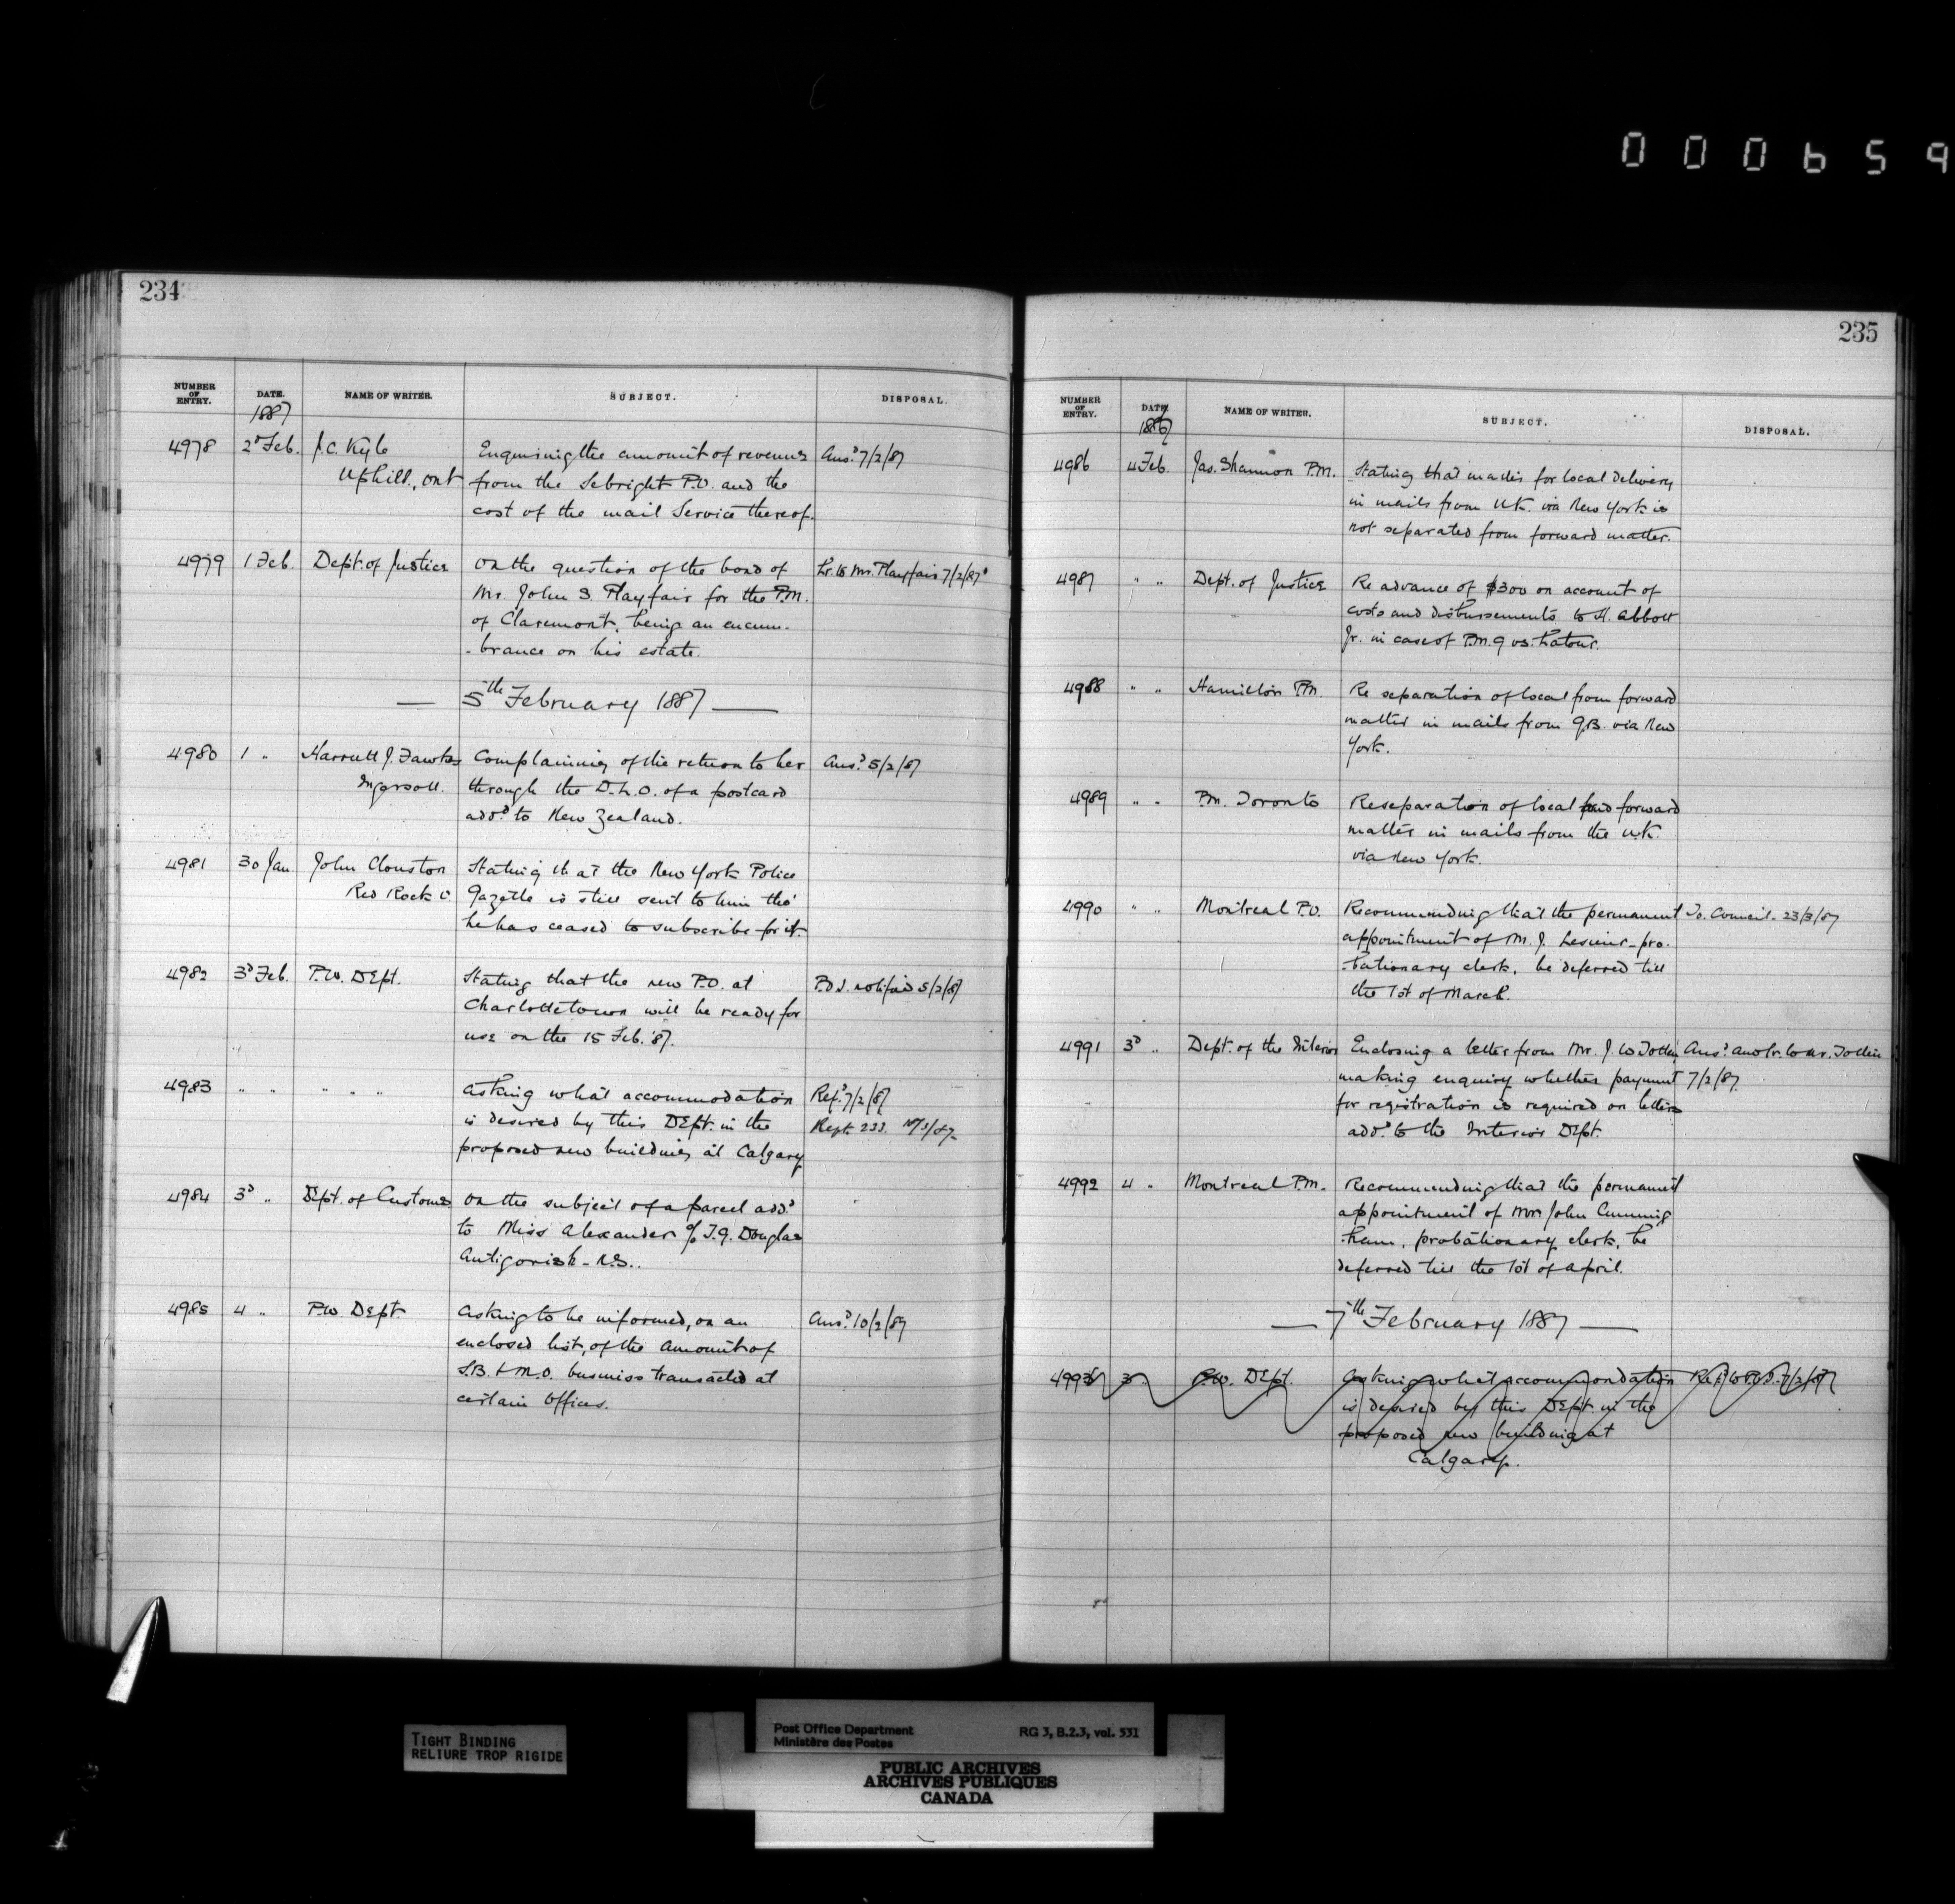 000659
234
NUMBER OF ENTRY. DATE. NAME OF WRITER. SUBJECT. DISPOSAL.
1887
4978 2d Feb. J.C. Kyle Enquiring the amount of revenue Ansd 7/2/87
Uphill, Ont from the Sebright P.O. and the
cost of the mail Service thereof.
4979 1 Feb. Dept. of Justice On the question of the bond of Lr. to Mr. Playfair 7/2/87
Mr. John S. Playfair for the P.M.
of Claremont, being an encum-
-brance on his estate.
— 5th February 1887 —
4980 1 " Harriett J. Fawkes Complaining of the return to her Ansd 5/2/87
Ingersoll. through the D.L.O. of a postcard
addd to New Zealand.
4981 30 Jan John Clouston Stating that the New York Police
Red Rock Gazette is still sent to him tho'
he has ceased to subscribe for it.
4982 3d Feb. P.W. Dept. Stating that the new P.O. at P.O.I. notified 5/2/87
Charlottetown will be ready for
use on the 15 Feb. '87.
4983 " " " " Asking what accommodation Refd 7/2/87
is desired by this Dept. in the Rept. 233.
proposed new building at Calgary
4984 3d " Dept. of Customs On the subject of a parcel addd
to Miss Alexander c/o T.G. Douglas
Antigonish - N.S..
4985 4 " P.W. Dept. Asking to be informed, on an Ansd 10/2/87
enclosed list, of the amount of
S.B. & M.O. business transacted at
certain offices.
235
NUMBER OF ENTRY. DATE. NAME OF WRITER. SUBJECT. DISPOSAL.
1887
4986 4 Feb. Jas. Shannon P.M. Stating that matter for local delivery
in mails from U.K. via New York is
not separated from forward matter.
4987 " " Dept. of Justice Re advance of $300 on account of
costs and disbursements to H. Abbott
Jr. in case of P.M.G vs. Latour.
4988 " " Hamilton P.M. Re separation of local from forward
matter in mails from G.B. via New
York.
4989 " " P.M. Toronto Re separation of local and forward
matter in mails from the U.K.
via New York.
4990 " " Montreal P.O. Recommending that the permanent To. Council. 23/3/87
appointment of M. J. Lesieur - pro-
-bationary clerk, be deferred till
the 1st of March.
4991 3d " Dept. of the Interior Enclosing a letter from Mr. J. W Totten Ansd and lr. to Mr. Totten
making enquiry whether payment 7/2/87
for registration is required on letters
addd to the Interior Dept.
4992 4 " Montreal P.M. Recommending that the permanent
appointment of Mr John Cunning
-ham, probationary clerk, be
deferred till the 1st of April.
— 7th February 1887 —
4993 3 " P.W. Dept. Asking what accommodation Refd to 7/2/87
is desired by this Dept. in the
proposed new building at
Calgary.
TIGHT BINDING
RELIURE TROP RIGIDE
Post Office Department RG 3, B.2.3, vol. 531
Ministère des Postes
PUBLIC ARCHIVES
ARCHIVES PUBLIQUES
CANADA